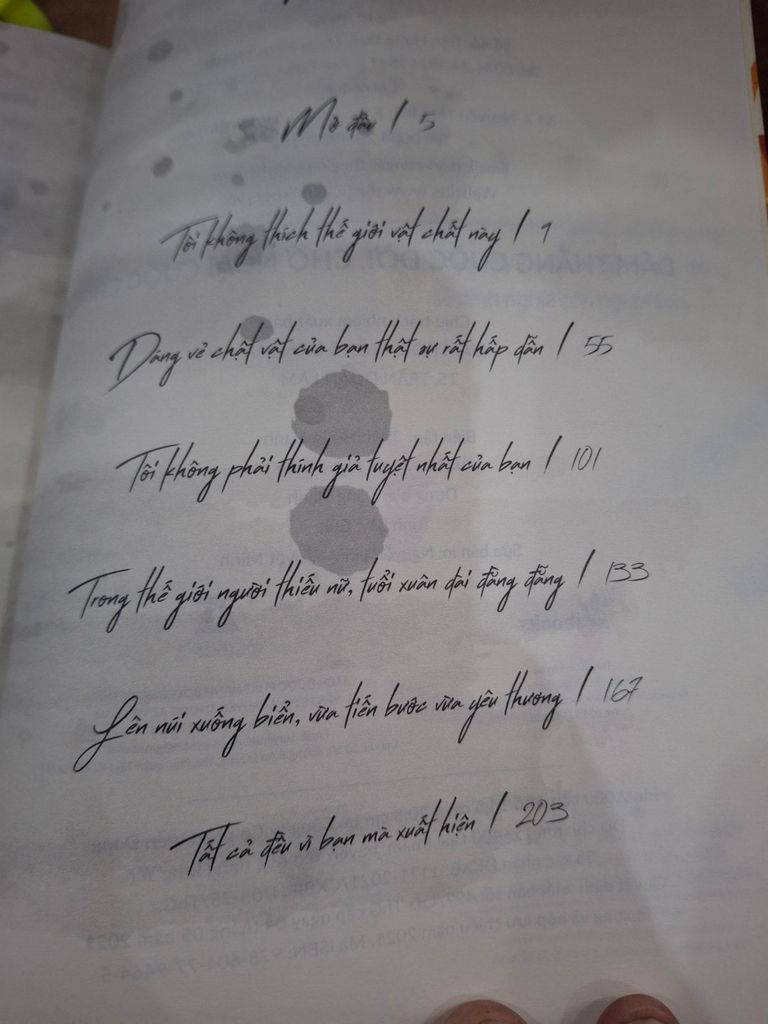 Mở đầu / 5
Tôi không thích thế giới vật chất này / 9
Dáng vẻ chật vật của bạn thật sự rất hấp dẫn / 55
Tôi không phải thính giả tuyệt nhất của bạn / 101
Trong thế giới người thiếu nữ, tuổi xuân dài đằng đẵng / 133
Lên núi xuống biển, vừa tiến bước vừa yêu thương / 167
Tất cả đều vì bạn mà xuất hiện / 203